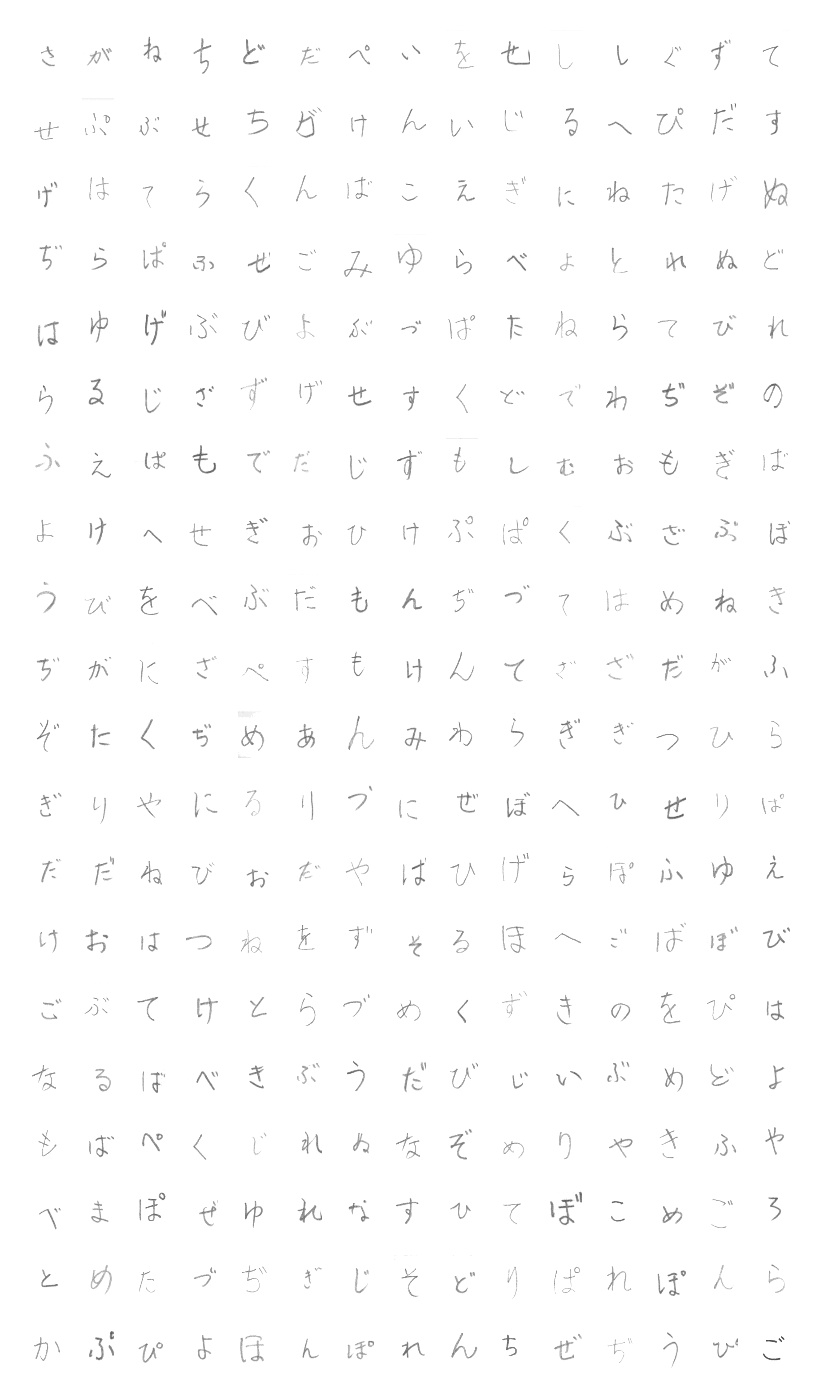 さがねちどだぺいをせししぐずて
せぷぶせちがけんいじるへぴだす
げはてらくんばこえぎにねたげぬ
ぢらぱふぜごみゆらべょとれぬど
はゆげぶびよぶづぱたねらてびれ
らるじざずげせすくどでわぢぞの
ふえぱもでだじずもしむおもぎば
よけへせぎおひけぷぱくぶざぶぼ
うびをべぶだもんぢづてはめねき
ぢがにざぺすもけんてざざだがふ
ぞたくぢめあんみわらぎぎつひら
ぎりやにるりづにぜぼへひせりぱ
だだねびおだやばひげらぽふゆえ
けおはつねをずそるほへごばぼび
ごぶてけとらづめくずきのをぴは
なるばべきぶうだびじいぶめどよ
もばぺくじれぬなぞめりやきふや
べまぽぜゆれなすひてぼこめごろ
とめたづぢぎじそどりぱれぽんら
かぷぴよほんぽれんちぜぢうびご